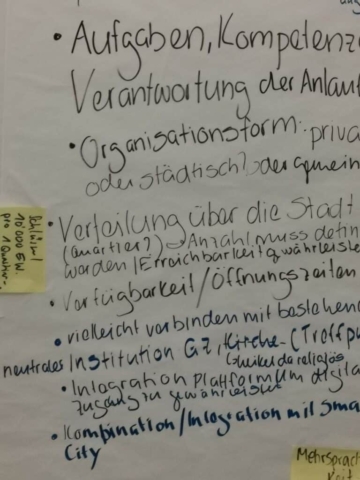 • Aufgaben, Kompetenz
Verantwortung der Anlauf
• Organisationsform: priva
oder städtisch? oder gemein
• Verteilung über die Stadt
(Quartier?) → Anzahl muss defin
werden / Erreichbarkeit gewährleis
Schlüssel
10'000 EW.
pro 1 Quartier-
• Verfügbarkeit / Öffnungszeiten
• vielleicht verbinden mit bestehend
neutrales Institution GZ, Kirche - (Treffpu
religiös
• Integration Plattform um digita
Zugang zu gewährleisten
• Kombination / Integration mit Sma
City
Mehrsprach
keit